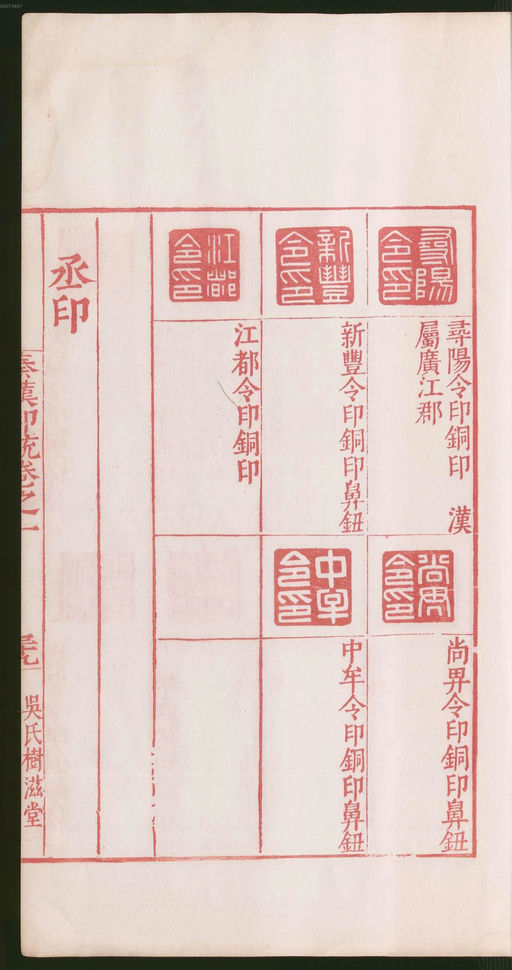 尋陽令印
尋陽令印銅印 漢
屬廣江郡
新豐令印
新豐令印銅印鼻鈕
江都令印
江都令印銅印
令印
尚畀令印銅印鼻鈕
中牟令印
中牟令印銅印鼻鈕
丞印
秦漢印統卷之一
吳氏樹滋堂
00073487